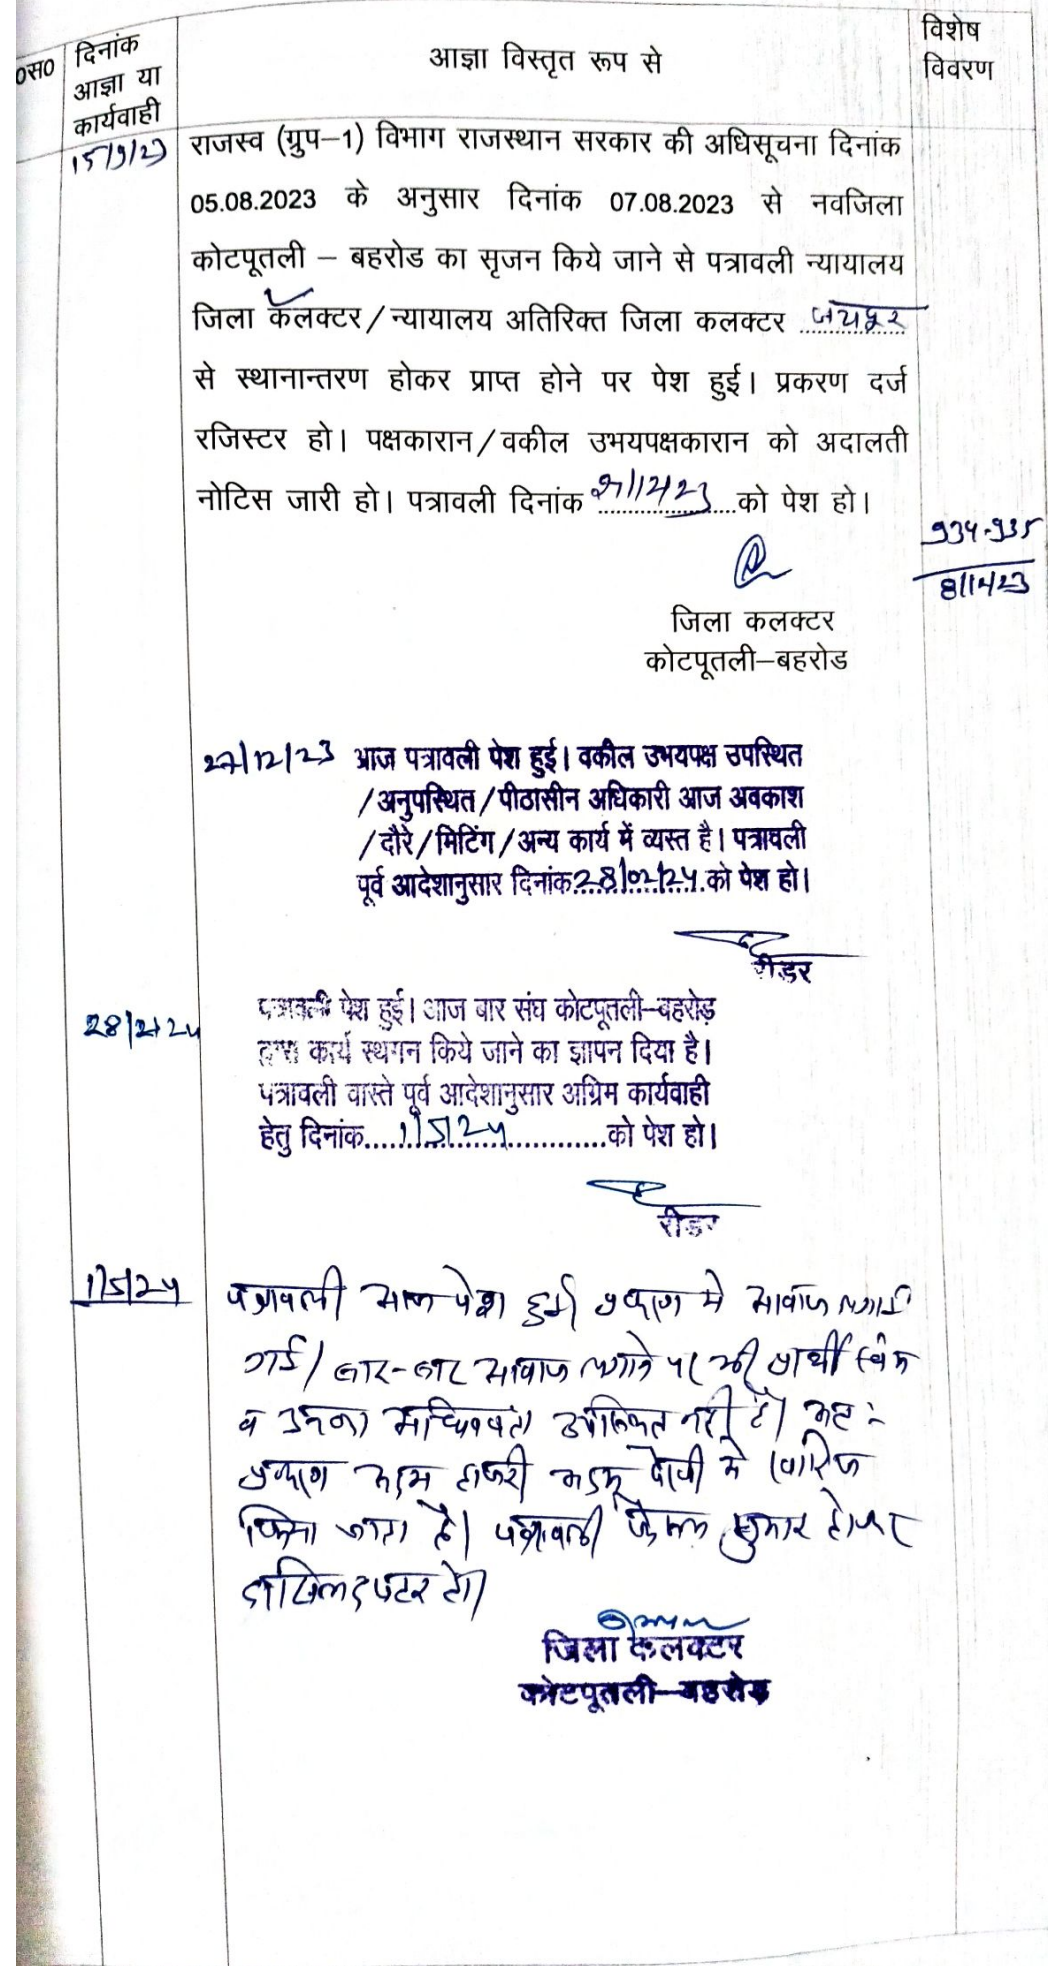 ०स०
दिनांक
आज्ञा या
कार्यवाही
आज्ञा विस्तृत रूप से
विशेष
विवरण
15/9/23
राजस्व (ग्रुप–1) विभाग राजस्थान सरकार की अधिसूचना दिनांक
05.08.2023 के अनुसार दिनांक 07.08.2023 से नवजिला
कोटपूतली – बहरोड का सृजन किये जाने से पत्रावली न्यायालय
जिला कलक्टर/न्यायालय अतिरिक्त जिला कलक्टर जयपुर
से स्थानान्तरण होकर प्राप्त होने पर पेश हुई। प्रकरण दर्ज
रजिस्टर हो। पक्षकारान/वकील उभयपक्षकारान को अदालती
नोटिस जारी हो। पत्रावली दिनांक 27/12/23 को पेश हो।
934-935
8/12/23
जिला कलक्टर
कोटपूतली–बहरोड
27/12/23 आज पत्रावली पेश हुई। वकील उभयपक्ष उपस्थित
/अनुपस्थित/पीठासीन अधिकारी आज अवकाश
/दौरे/मिटिंग/अन्य कार्य में व्यस्त है। पत्रावली
पूर्व आदेशानुसार दिनांक 28/02/24 को पेश हो।
रीडर
28/2/24
पत्रावली पेश हुई। आज बार संघ कोटपूतली–बहरोड़
द्वारा कार्य स्थगन किये जाने का ज्ञापन दिया है।
पत्रावली वास्ते पूर्व आदेशानुसार अग्रिम कार्यवाही
हेतु दिनांक.....1/5/24.....को पेश हो।
रीडर
1/5/24
पत्रावली आज पेश हुई प्रकरण मे आवाज लगाई
गई। बार-बार आवाज लगाने पर भी प्रार्थी स्वंय
व उनका अधिवक्ता उपस्थित नही है। अतः
प्रकरण अदम हाजरी अदम पैरवी मे खारिज
किया जाता है। पत्रावली फैसल शुमार होकर
दाखिल दफ्तर हो।
जिला कलक्टर
कोटपूतली–बहरोड